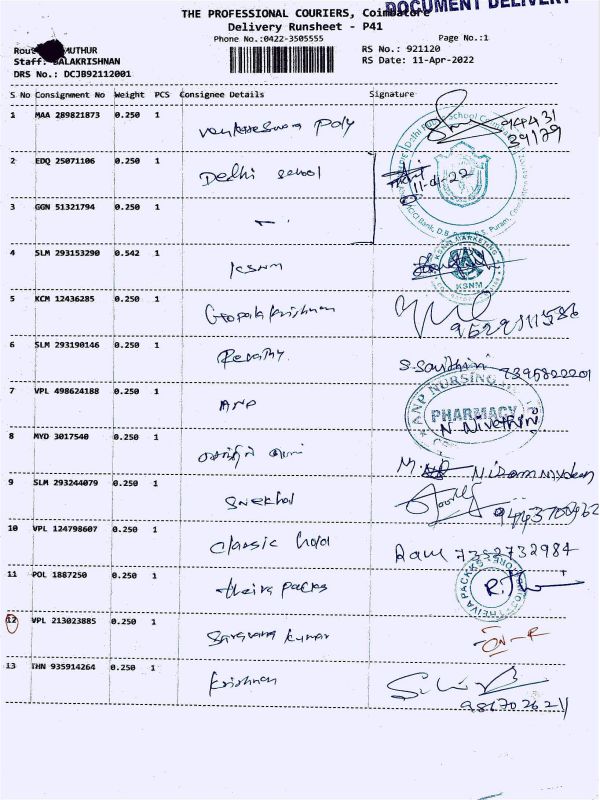 DOCUMENT DELIVERY
THE PROFESSIONAL COURIERS, Coimbatore
Delivery Runsheet - P41
Phone No.:0422-3505555
Page No.:1
MUTHUR
RS No.: 921120
Staff: BALAKRISHNAN
RS Date: 11-Apr-2022
DRS No.: DCJB92112001
S No Consignment No Weight PCS Consignee Details Signature
1 MAA 289821873 0.250 1 Venkateswara Poly 94431
39179
2 EDQ 25071106 0.250 1 Delhi school 11-04-22
3 GGN 51321794 0.250 1
4 SLM 293153290 0.542 1 KSNM
KSNM MARKETING
KSNM
5 KCM 12436285 0.250 1 Gopalakrishnan
6 SLM 293190146 0.250 1 Revathy S. Savithiri 7395822201
7 VPL 498624188 0.250 1 ANP
ANP NURSING
PHARMACY
N. Nivethini
8 MYD 3017540 0.250 1
9 SLM 293244079 0.250 1 Snekhal
10 VPL 124798607 0.250 1 Classic hold Ram 7352732984
11 POL 1887250 0.250 1 theiva packs
THEIVA PACKKS
12 VPL 213023885 0.250 1 Saravana kumar
13 IHN 935914264 0.250 1 Krishnan